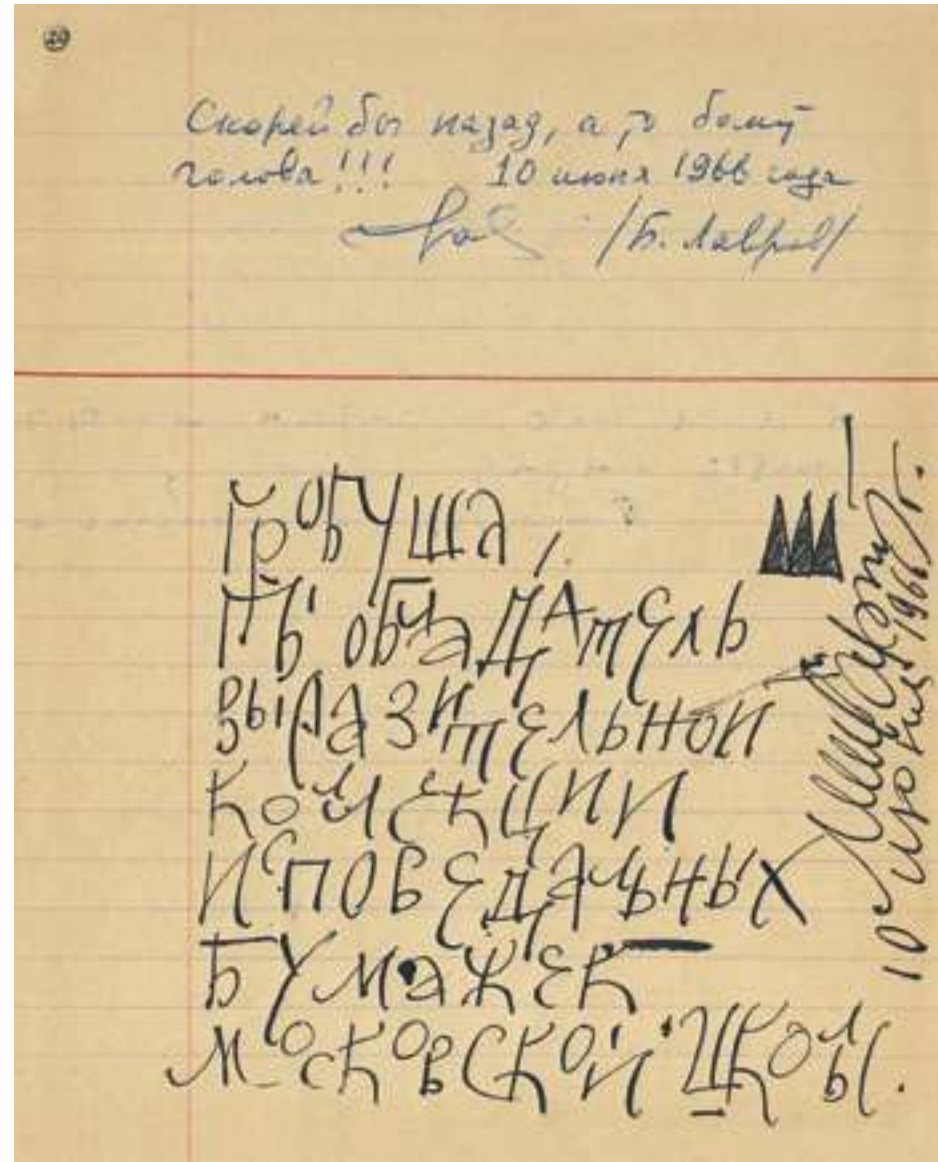 Скорей бы назад, а то болит
голова!!! 10 июня 1966 года
/Б. Лавров/
Гробуша,
Ты обладатель
выразительной
коллекции
исповедальных
бумажек
московской школы.
10 июня 1966 г.